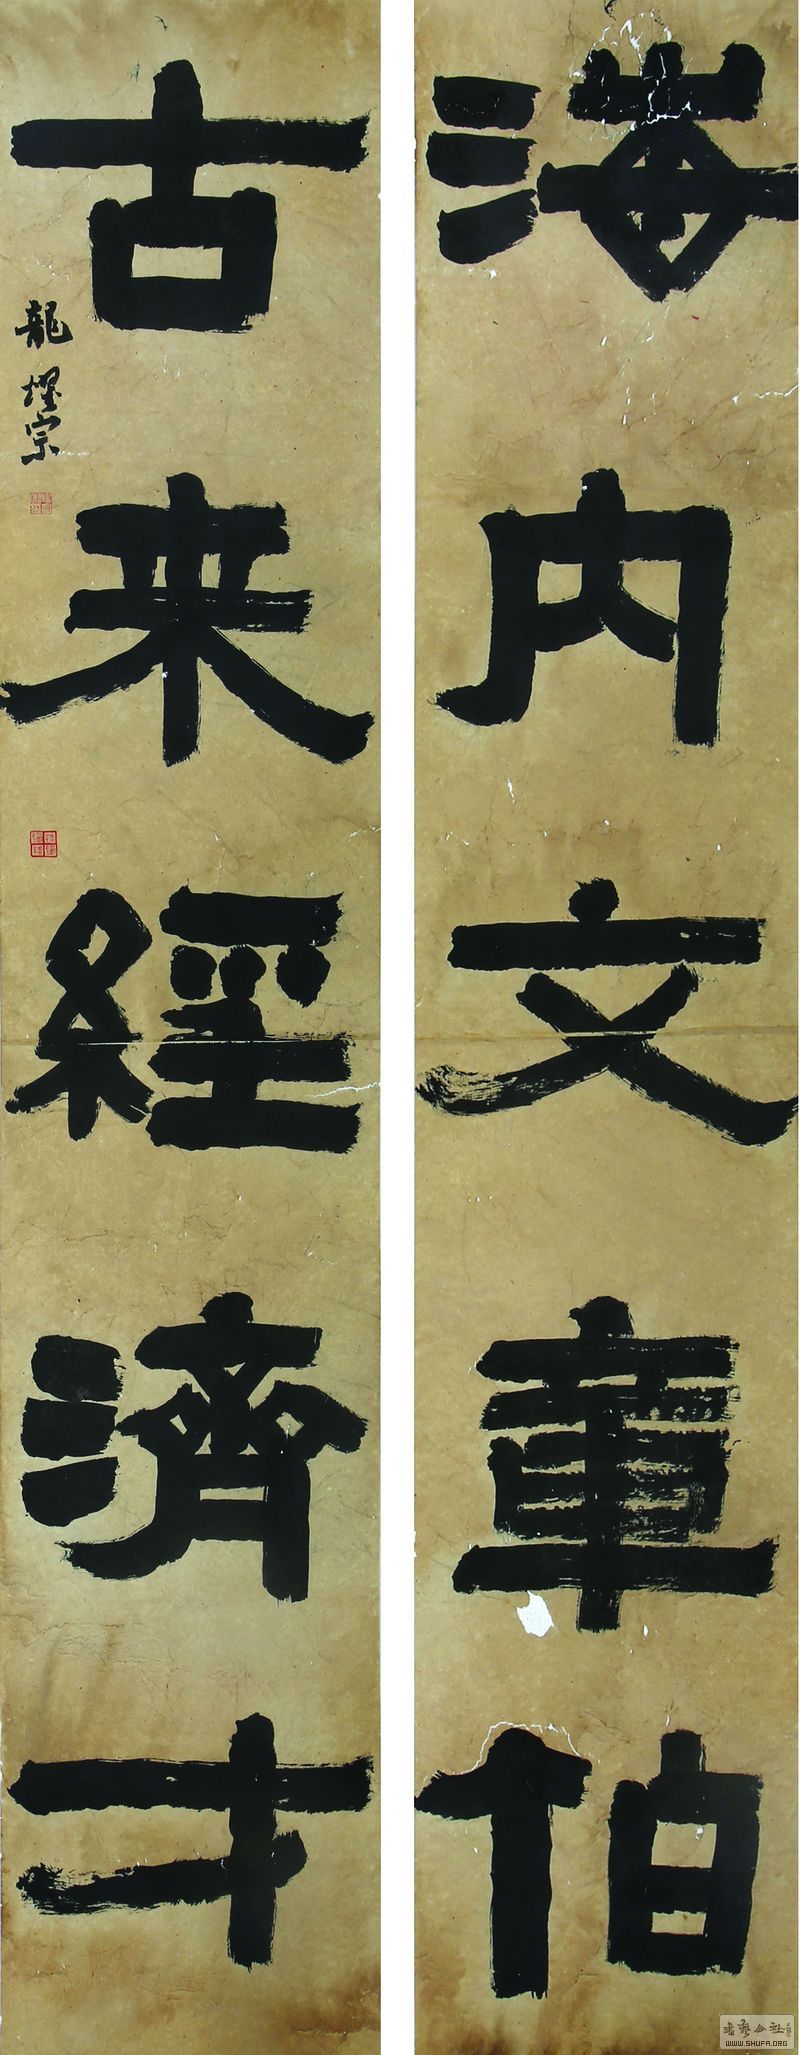 海内文章伯
古来經濟才
龍燿宗
書藝公社
WWW.SHUFA.ORG